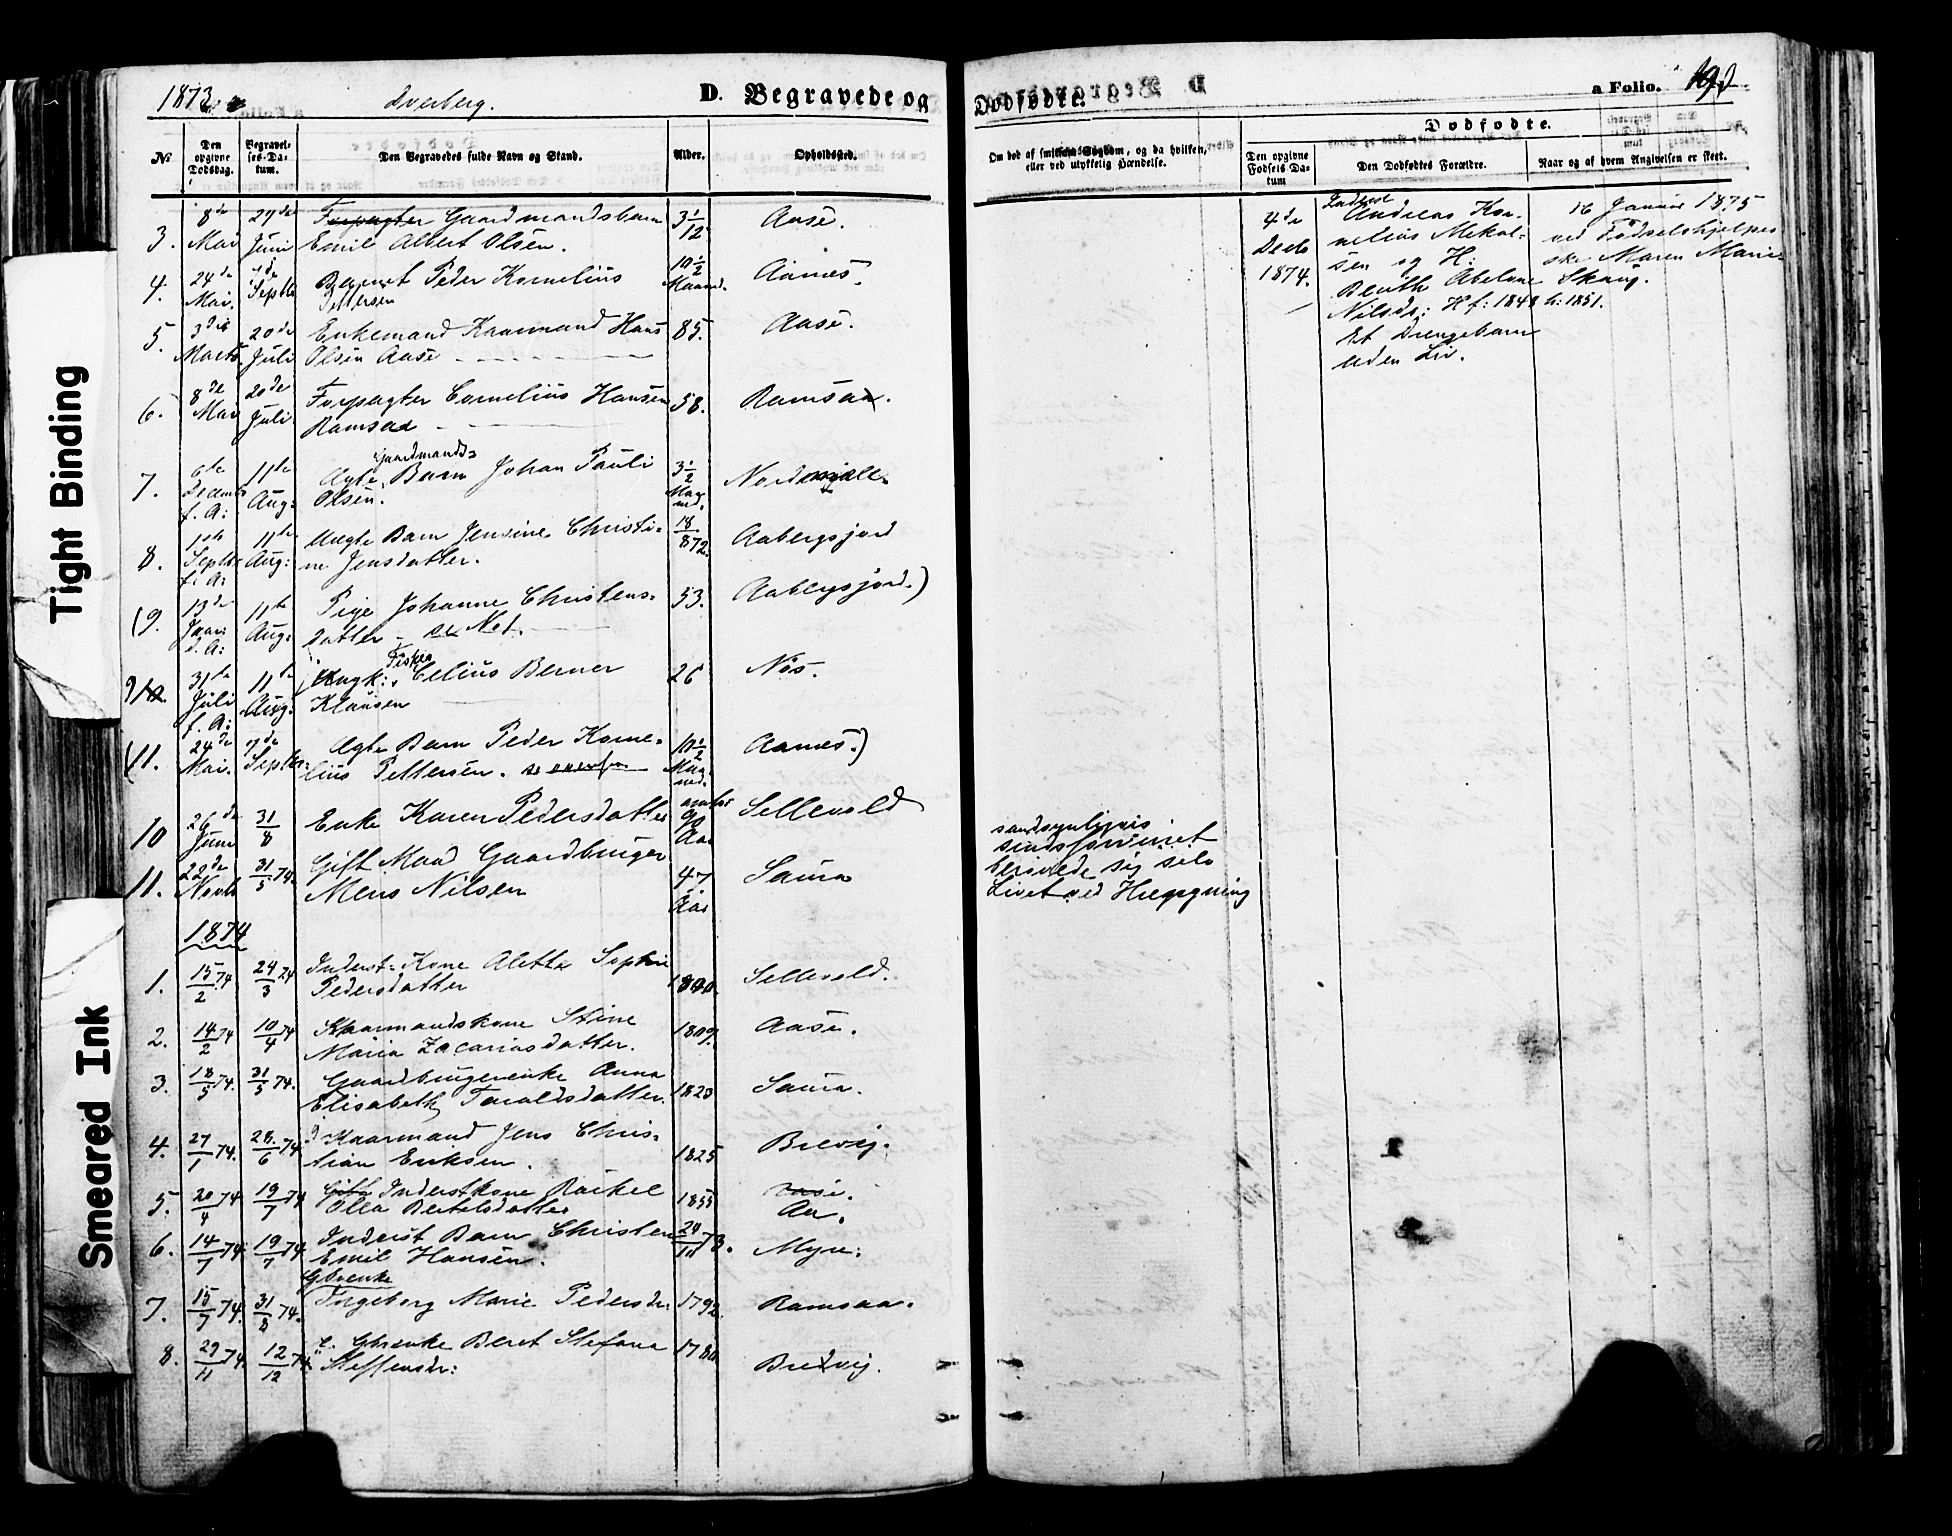 Tight Binding
Smeared Ink
1873
Dverberg.
D. Begravede og
Dødfødte.
a Folio. 190
No
Den opgivne Dødsdag.
Begravelses-Datum.
Den Begravedes fulde Navn og Stand.
Alder.
Opholdssted.
Om død af smitsom Sygdom, og da hvilken, eller ved ulykkelig Hændelse.
Dødfødte.
Den opgivne Fødsels-Datum
Den Dødfødtes Forældre.
Naar og af hvem Angivelsen er skeet.
3. 8de Mai 29de Juni Forpagter Gaardmandsbarn 3 1/12 Aase.
Emil Albert Olsen.
4. 24de Mai. 7de Septb Peder Kornelius 10 1/2 Maaned. Aanes.
Pettersen
5. 3die Marts 20de Juli Enkemand Kaarmand Hans 85. Aase.
Olsen Aase
6. 8de Mai 20de Juli Forpagter Cornelius Hansen 58. Ramsaa.
Ramsaa
7. 6te Decemb f. A: 11te Aug: Ægte Gaardmands Barn Johan Pauli 3 1/2 Maaned. Nordmjele.
Olsen.
8. Septbr f. A: 11te Aug: Uægte Barn Jensine Christi- 18/8 72. Aabergsjord
ne Jensdatter.
(9. 13de Juni d. A: 11te Aug: Pige Johanne Christens- 53. Aabergsjord.)
datter - se Not.
9 31te Juli f. A: 11te Aug: Ungk: Fisker Celius Berner 26 Nøs.
Klausen
(11. 24de Mai. 7de Septbr Ægte Barn Peder Korne- 10 1/2 Maaned. Aanes.)
lius Pettersen. se ovenfor
10 26de Juni 31/8 Enke Karen Pedersdatter omtr 90 Aar Sellevold
11. 22de Novb 31/5 74. Gift Mand Gaardbruger 47 Aar Saura
Mens Nilsen
sandsynligvis
sindsforvirret
berøvede sig selv
Livet ved Hængning
1874
1. 15/2 74 24/3 74 Inderst-Kone Aletta Sophie Sellevold.
Pedersdatter
2. 14/2 74 10/4 74 Kaarmandskone Stine 1809. Aase.
Maria Zacariasdatter.
3. 18/5 74. 31/5 74. Gaardbrugerenke Anna 1820 Saura.
Elisabeth Taraldsdatter.
4. 27/1 74. 28/6 74 Kaarmand Jens Chris- 1825 Brevig.
tian Eriksen.
5. 20/4 74. 19/7 74 Gift Inderstkone Rachel 1855 Aase.
Olea Bertelsdatter Aa.
6. 14/7 74. 19/7 74 Inderst Barn Christen 24/11 73. Myre.
Emil Hansen.
7. 15/7 74. 31/8 74. Gbrenke
Ingeborg Marie Pedersdr. 1792 Ramsaa.
8. 29/11 74. 12/12 74. Gbrenke Beret Stefana 1780 Bredvig.
Steffensdr:
4de Decb 1874.
Inderst
Andreas Kor-
nelius Mekal-
sen og H:
Berith Abelone
Nilsdr: Hf: 1848 h: 1851.
Et Drengebarn
uden Liv.
16 Januar 1875
ved Fødselshjelper-
ske Maren Marie
Skaug.